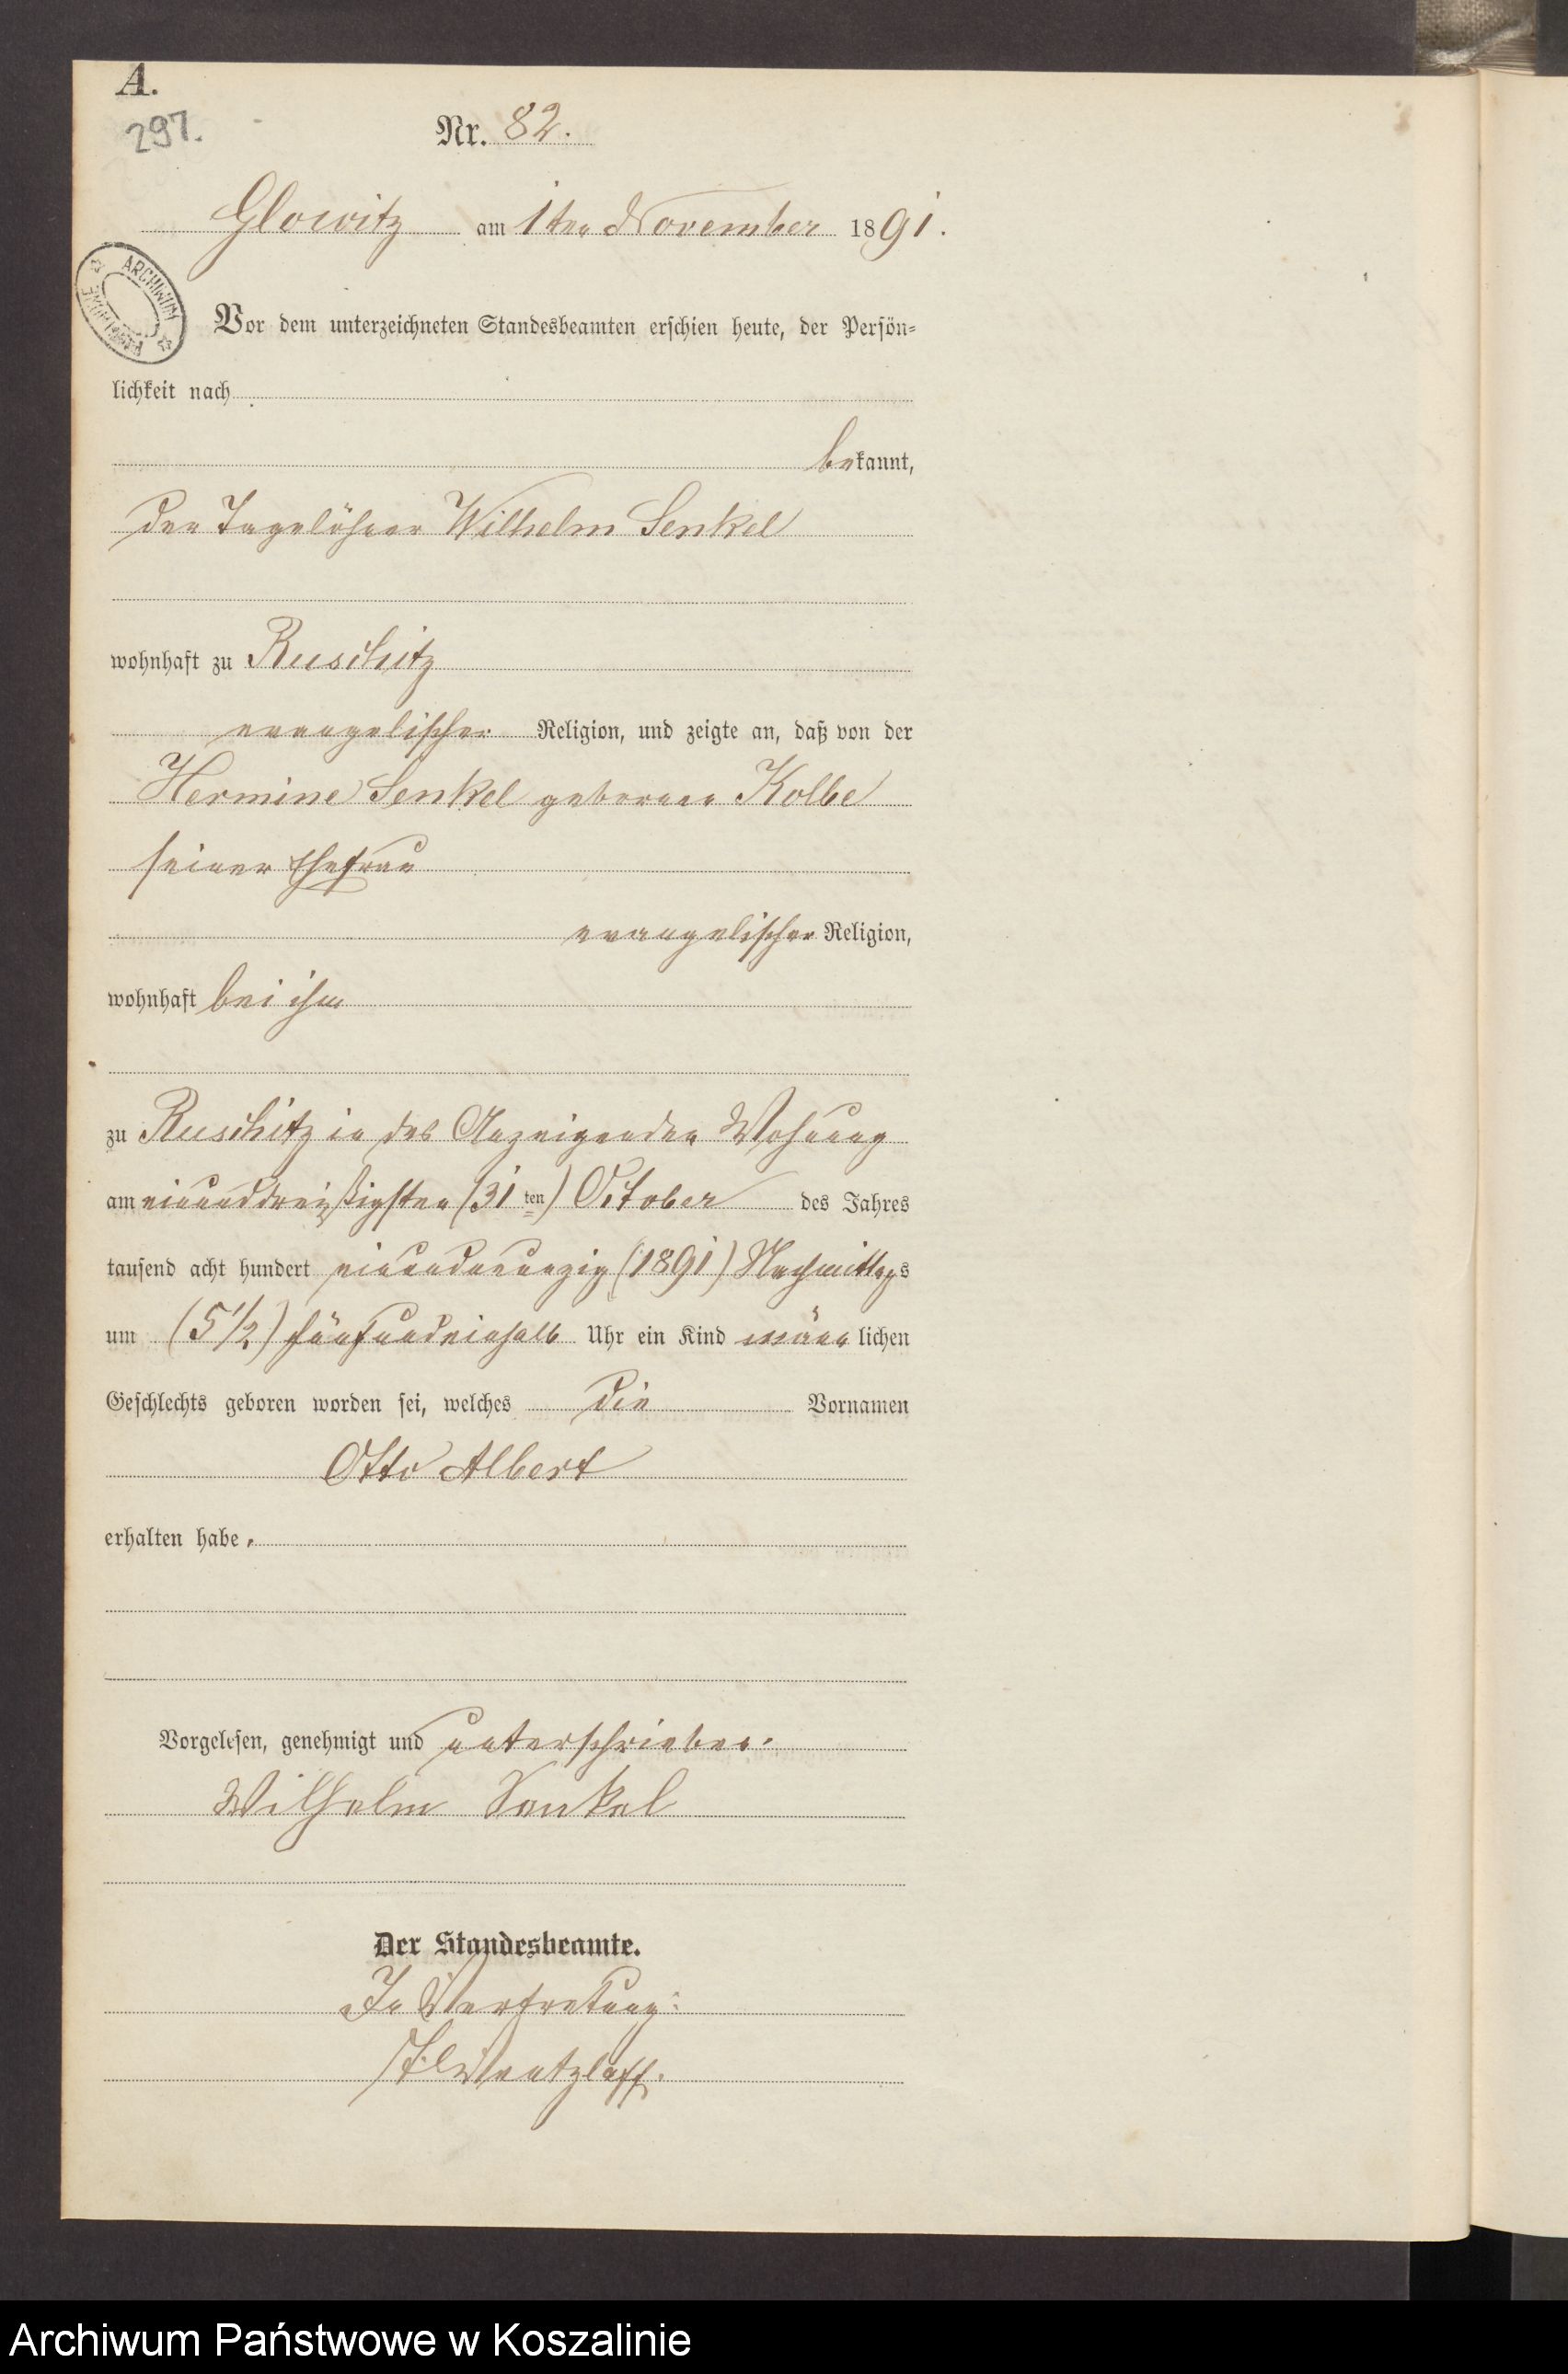 A.
297.
Nr. 82.
Glowitz am 1ten November 1891.
ARCHIWUM
Vor dem unterzeichneten Standesbeamten erschien heute, der Persön=
lichkeit nach
bekannt,
der Tagelöhner Wilhelm Senkel
wohnhaft zu Ruschitz
evangelischer Religion, und zeigte an, daß von der
Hermine Senkel geborene Kolbe
seiner Ehefrau
evangelischer Religion,
wohnhaft bei ihm
zu Ruschitz in des Anzeigenden Wohnung
am einunddreißigsten (31ten) October des Jahres
tausend acht hundert einundneunzig (1891) Nachmittags
um (5 1/2) fünfundeinhalb Uhr ein Kind männlichen
Geschlechts geboren worden sei, welches die Vornamen
Otto Albert
erhalten habe.
Vorgelesen, genehmigt und unterschrieben.
Wilhelm Senkel
Der Standesbeamte.
In Vertretung:
Wentzlaff.
Archiwum Państwowe w Koszalinie